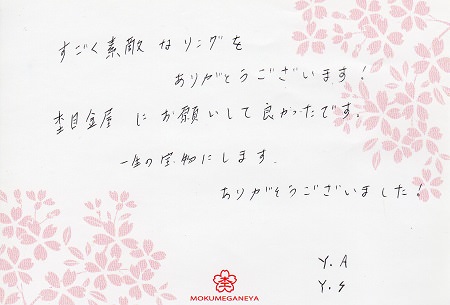 すごく素敵なリングを
ありがとうございます!
杢目金屋にお願いして良かったです。
一生の宝物にします。
ありがとうございました!
Y.A
Y.S
杢
MOKUMEGANEYA